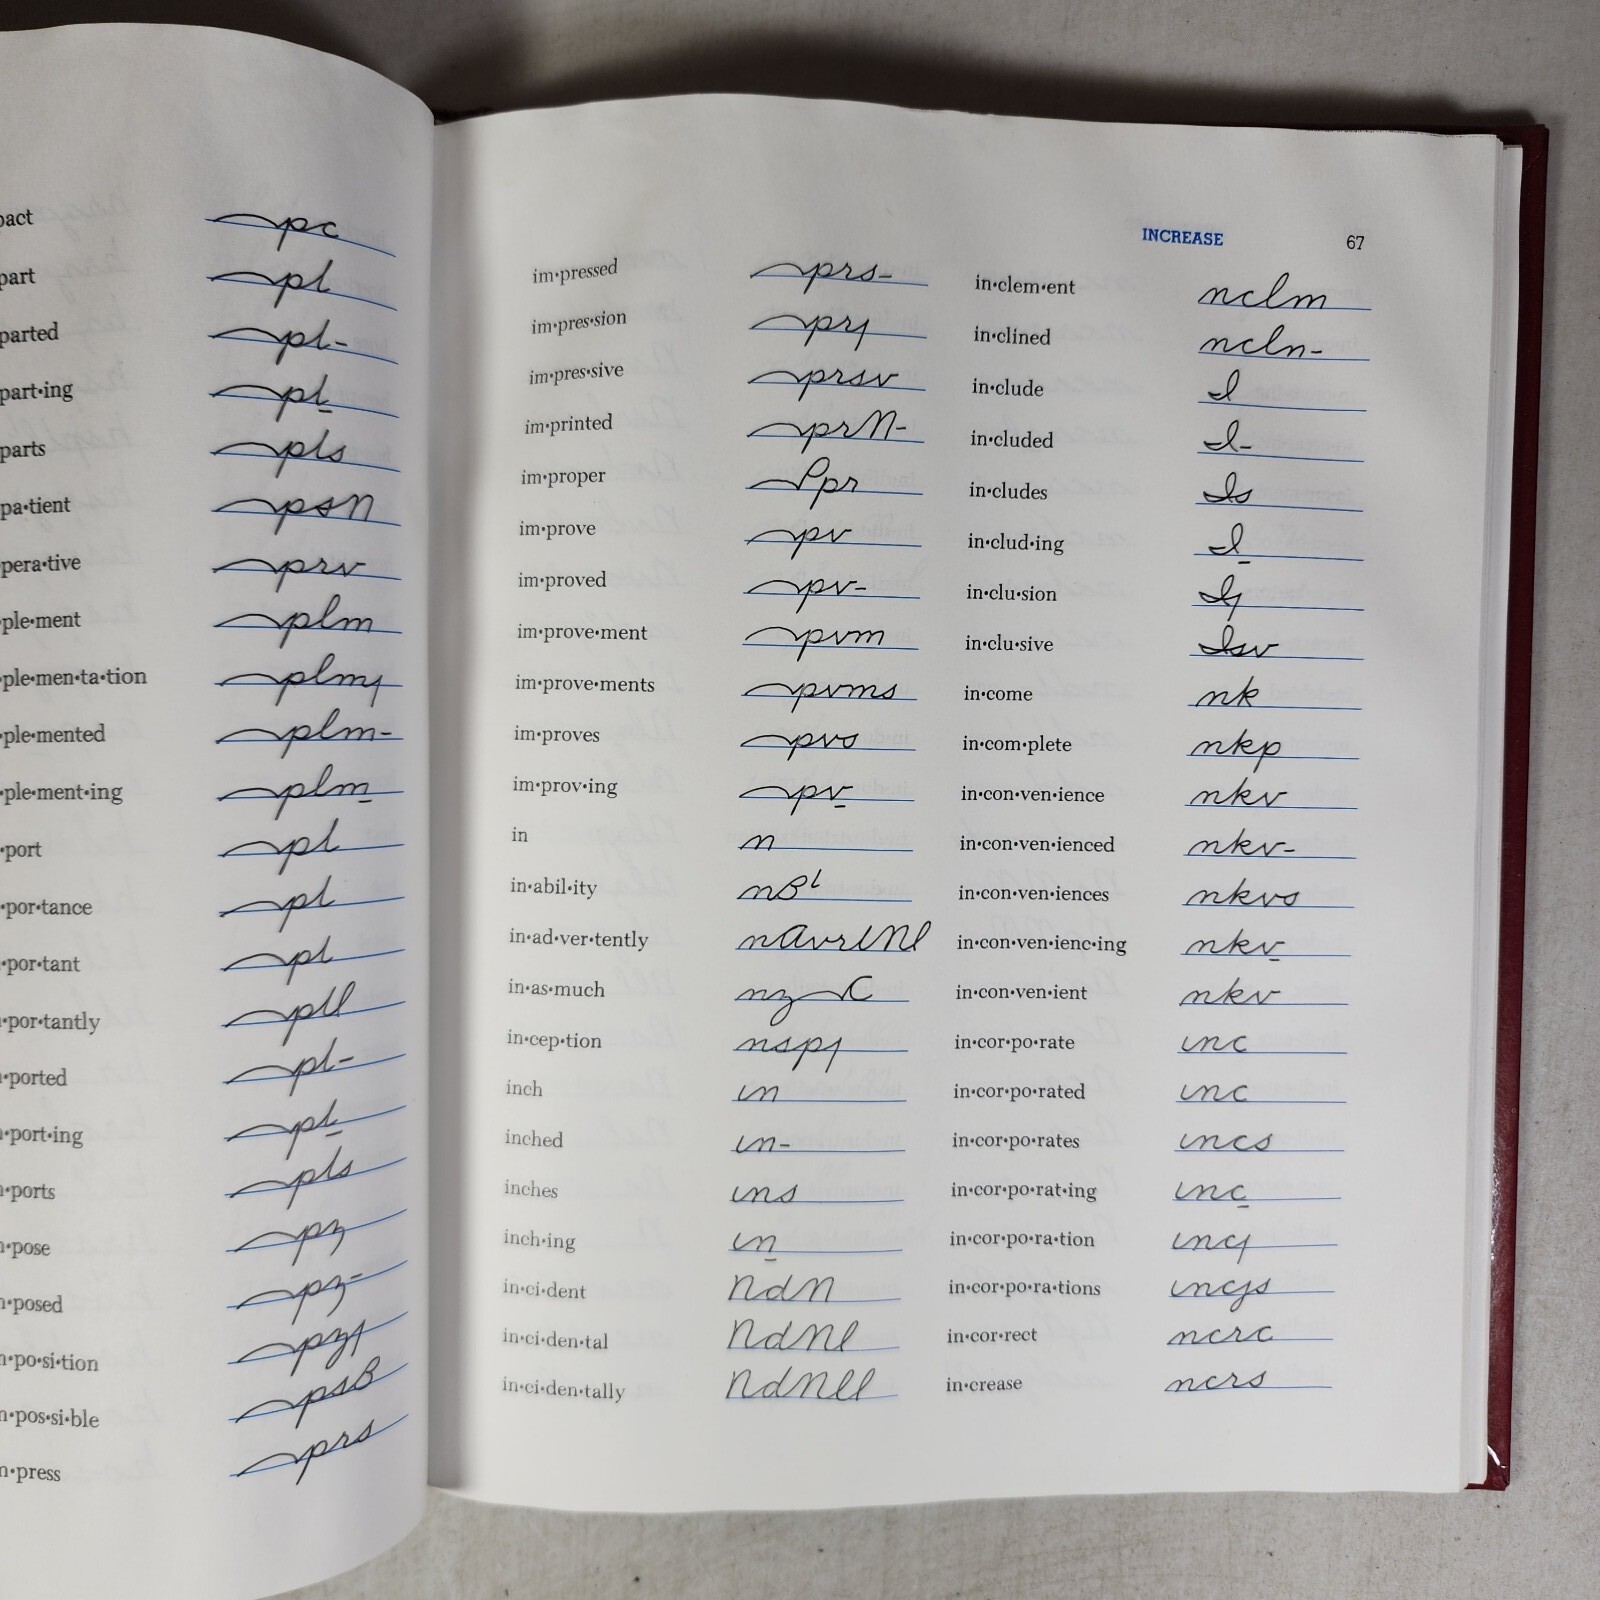 pact pc
part pl
parted pl-
part•ing pl
parts pls
pa•tient psn
pera•tive prv
ple•ment plm
ple•men•ta•tion plmj
ple•mented plm-
ple•ment•ing plm
•port pl
•por•tance pl
por•tant pl
•por•tantly pll
ported pl-
•port•ing pl
ports pls
•pose pz
•posed pz-
•po•si•tion pzj
•pos•si•ble psB
•press prs
INCREASE 67
im•pressed prs-
im•pres•sion prj
im•pres•sive prsv
im•printed prN-
im•proper Ppr
im•prove pv
im•proved pv-
im•prove•ment pvm
im•prove•ments pvms
im•proves pvs
im•prov•ing pv
in n
in•abil•ity nBl
in•ad•ver•tently navrlNl
in•as•much nz C
in•cep•tion nspj
inch in
inched in-
inches ins
inch•ing in
in•ci•dent NdN
in•ci•den•tal NdNl
in•ci•den•tally NdNll
in•clem•ent nclm
in•clined ncln-
in•clude
in•cluded
in•cludes
in•clud•ing
in•clu•sion
in•clu•sive
in•come nk
in•com•plete nkp
in•con•ven•ience nkv
in•con•ven•ienced nkv-
in•con•ven•iences nkvs
in•con•ven•ienc•ing nkv
in•con•ven•ient nkv
in•cor•po•rate inc
in•cor•po•rated inc
in•cor•po•rates incs
in•cor•po•rat•ing inc
in•cor•po•ra•tion incj
in•cor•po•ra•tions incjs
in•cor•rect ncrc
in•crease ncrs